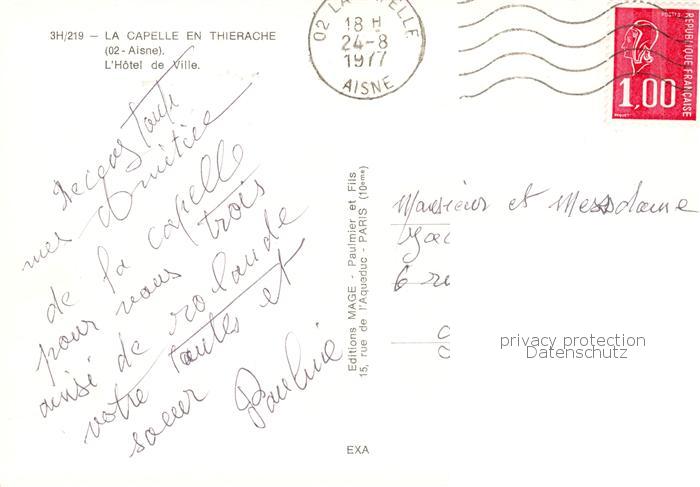 3H/219 — LA CAPELLE EN THIERACHE
(02 - Aisne).
L'Hôtel de Ville.
02 LA CAPELLE
18 H
24-8
1977
AISNE
REPUBLIQUE FRANÇAISE
POSTES
1,00
mes amitiée
de la capelle
pour vous trois
ainsi de rolande
votre tantes et
soeur Pauline
Editions MAGE - Paulmier et Fils
15, rue de l'Aqueduc - PARIS (10ème)
Monsieur et Messdame
6 ru
privacy protection
Datenschutz
EXA